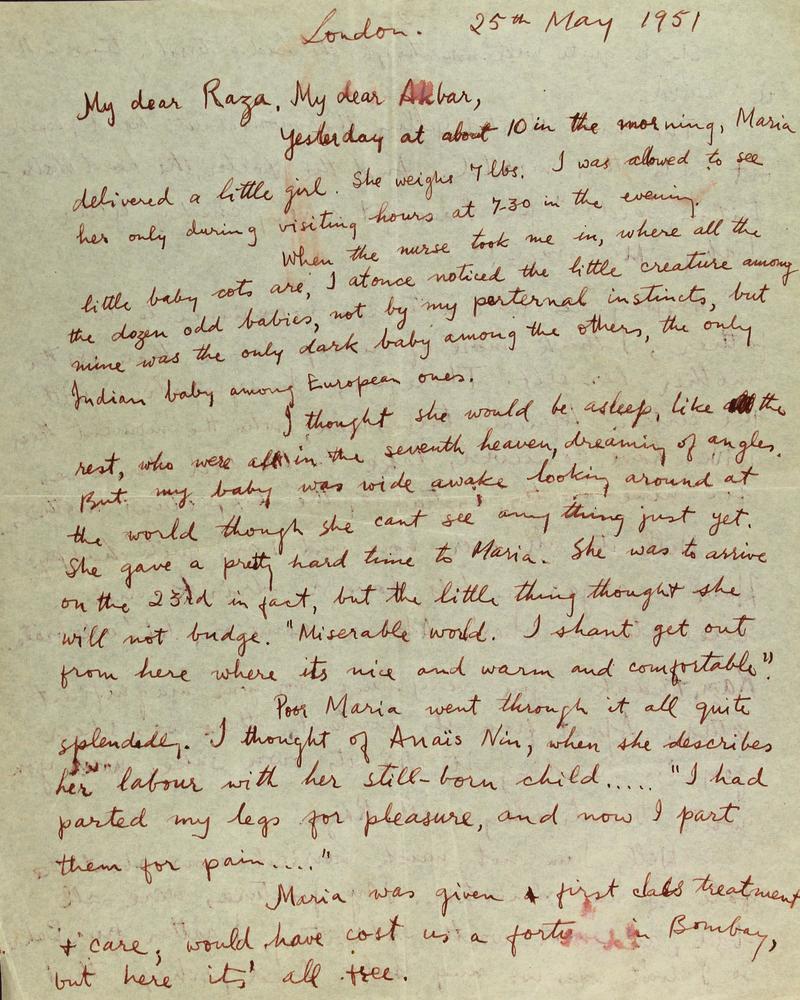 London. 25th May 1951
My dear Raza, My dear Akbar,
Yesterday at about 10 in the morning, Maria
delivered a little girl. She weighs 7 lbs. I was allowed to see
her only during visiting hours at 7-30 in the evening.
When the nurse took me in, where all the
little baby cots are, I atonce noticed the little creature among
the dozen odd babies, not by my perternal instincts, but
mine was the only dark baby among the others, the only
Indian baby among European ones.
I thought she would be asleep, like the
rest, who were all in the seventh heaven, dreaming of angles.
But my baby was wide awake looking around at
the world though she cant see' any thing just yet.
She gave a pretty hard time to Maria. She was to arrive
on the 23rd in fact, but the little thing thought she
will not budge. "Miserable world. I shant get out
from here where its nice and warm and comfortable".
Poor Maria went through it all quite
splendedly. I thought of Anaïs Nin, when she describes
her labour with her still-born child..... "I had
parted my legs for pleasure, and now I part
them for pain...."
Maria was given a first class treatment
+ care, would have cost us a in Bombay,
but here its' all free.